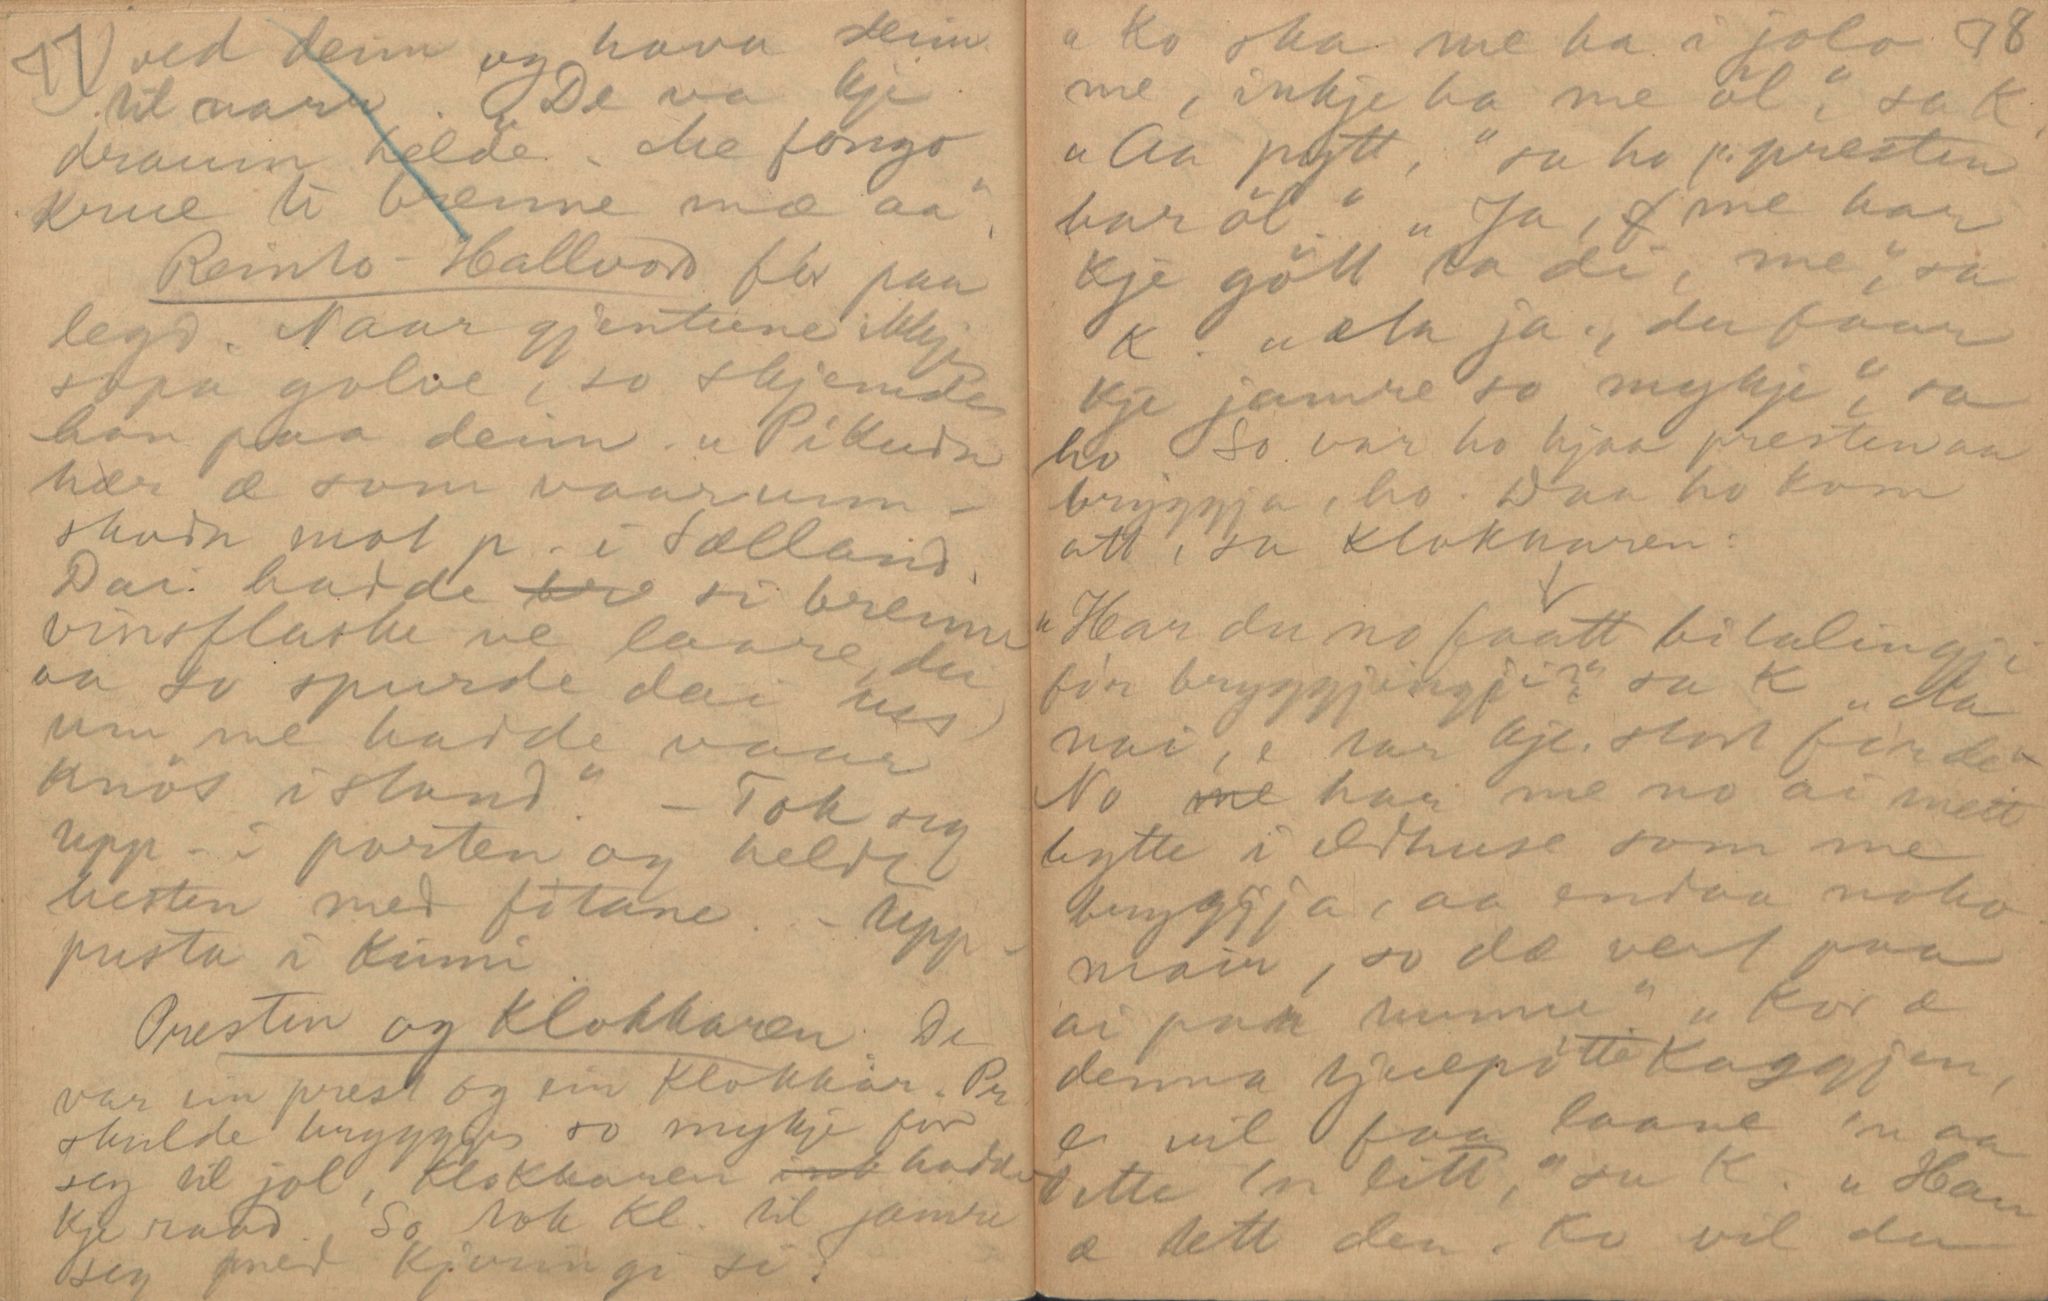 77 ved deim og hava deim
til narr. "De va kje
draum helde. Me fongo
krue ti brenne mæ aa".
Reinto-Hallvord for paa
legd. Naar gjentune ikkje
sopa golve, so skjemdes
han paa deim. "Pikudn
hær æ som vaarum-
skodn mot p. i Sælland.
Dai hadde bre si brenne
vinsflaske ve laare, dei
aa so spurde dai uss
um me hadde vaar
knös i stand" - Tok seg
upp - i porten og heldt
hesten med fötane. - Upp-
pusta i Kinni
Presten og Klokkaren. De
var ein prest og ein Klokkar. Pr
skulde bryggja so mykje for
seg til jol, Klokkaren ink hadde
kje raad. So tok Kl. til jamre
seg med kjæringi si:
"Ko ska me ha i jolo 78
me, inkje ha me öl", sa K,
"Aa pytt," sa ho p. presten
har öl." "Ja, me har
kje gött ta di, me", sa
K. "Aa ja, du faar
kje jamre so mykje", sa
ho So var ho hjaa presten aa
bryggja, ho. Daa ho kom
att, sa Klokkaren:
"Har du no faatt bitalingji
for bryggjingji?" sa K "Aa
nai, e har kje stort for de"
No me har me no ai mett
bytte i eldhuse som me
bryggja, aa endaa noko
mair, so dæ vert paa
ai paa tunne" "Kor æ
denna tjuepötte Kaggjen,
e vil faa laane 'n aa
tette 'n litt," sa K. "Han
æ tett den. Ko vil du